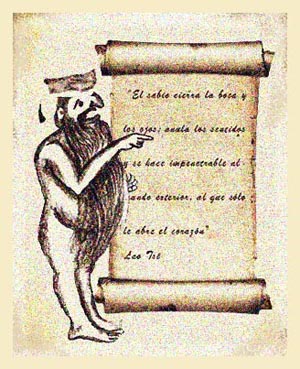 "El sabio cierra la boca y
los ojos; anula los sentidos
y se hace impenetrable al
undo exterior, al que sólo
le abre el corazón"
Lao Tsé